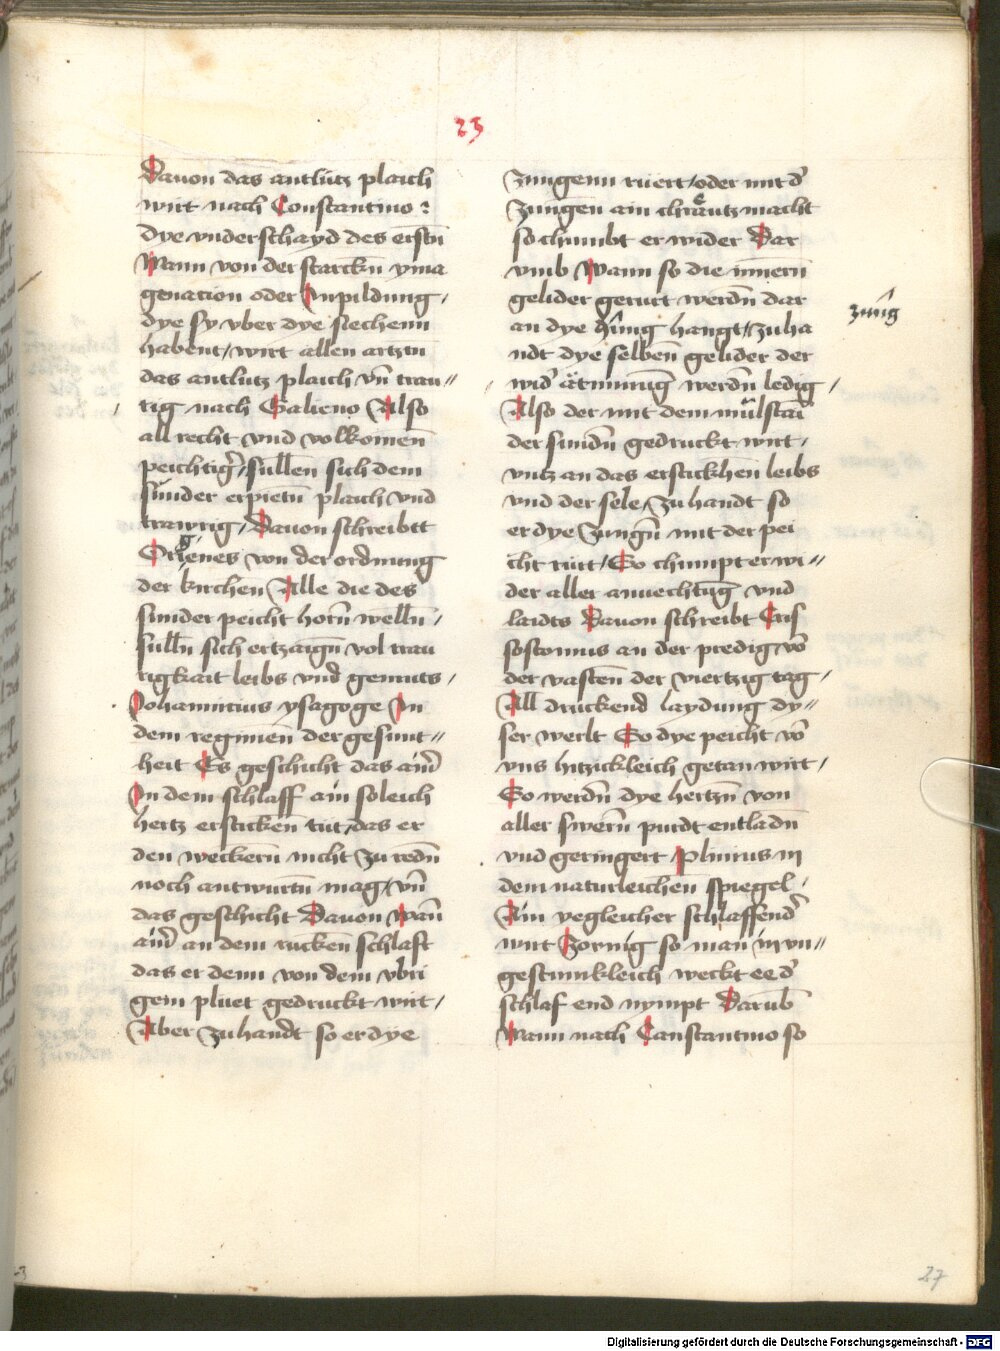 23
Dauon das antlutz plaich
wirt nach Constantino :
dye vnderschayd des erstn̄
Wann von der starckn̄ yma
genacion oder Inpildung ,
dye sy vber dye siechenn
habent / wirt allen artztn̄
das antlutz plaich vn̄ trau〃
rig nach Galieno Also
all recht vnd volkomen̄
peichtig̉ / sullen sich dem
sunder erpietn̄ plaich vnd
trawrig / Dauon schreibtt
Origenes von der ordnung
der kirchen Alle die des
sunder peicht horn̄ welln̄ /
sulln̄ sich ertzaign̄ vol trau
rigkait leibs vnd gemuts ,
Johannicius ysagoge In
dem regimen der gesunt〃
heit Es geschicht das ain̉
In dem schlaff ain soleich
hertz ersticken̄ tut / das er
den weckern̄ nicht zu redn̄
noch antwurtn̄ mag / vn̄
das geschicht Dauon wan̄
ain̉ an dem rucken̄ schlaft
das er denn von dem vbri
gem pluet gedruckt wirt /
Aber zuhandt so er dye
zungenn ruert / oder mit d̉
zungen̄ ain chräutz macht
so chumbt er wider Dar
vmb Wann so die innern̄
gelider gerurt werdn̄ dar
an dye zung hangt / zuha
ndt dye selben̄ gelider der
wid̉ ätmung werdn̄ ledig /
zung
Also der mit dem mulstai
der sundn̄ gedruckt wirt /
vntz an das ersticken̄ leibs
vnd der sele / zuhandt so
er dye zungn̄ mit der pei
cht rürt / So chumpt er wi〃
der aller anuechtung vnd
laidts Dauon schreibt Cris
sostomus an der predig vō
der vasten̄ der viertzig tag ,
All druckend laydung dy〃
ser werlt So dye peicht vō
vns hitzickleich getan wirt /
So werdn̄ dye hertzn̄ von
aller swern̄ purdt entladn̄
vnd geringert Plinius in
dem naturleichen̄ spiegel ,
Ain yegleicher schlaffend̉
wirt zornig so man in vn〃
gestumkleich weckt ee d̉
schlaf end nympt Darub̄
Wann nach Constantino so
27
Digitalisierung gefördert durch die Deutsche Forschungsgemeinschaft - DFG